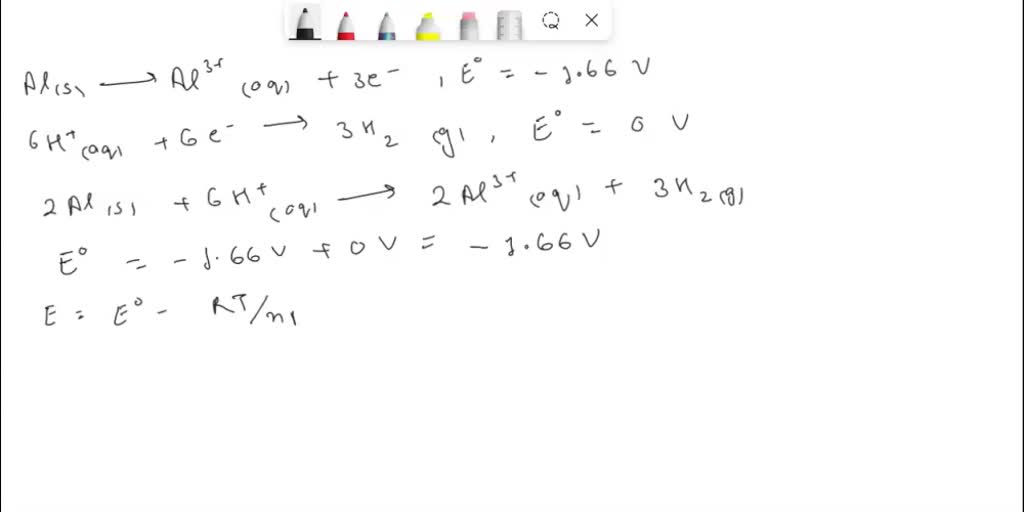 Al(s) → Al³⁺ (aq) + 3e⁻ , E° = -1.66 V
6H⁺(aq) + 6e⁻ → 3H₂ (g) , E° = 0 V
2Al(s) + 6H⁺(aq) → 2Al³⁺(aq) + 3H₂(g)
E° = -1.66 V + 0 V = -1.66 V
E = E° - RT/n